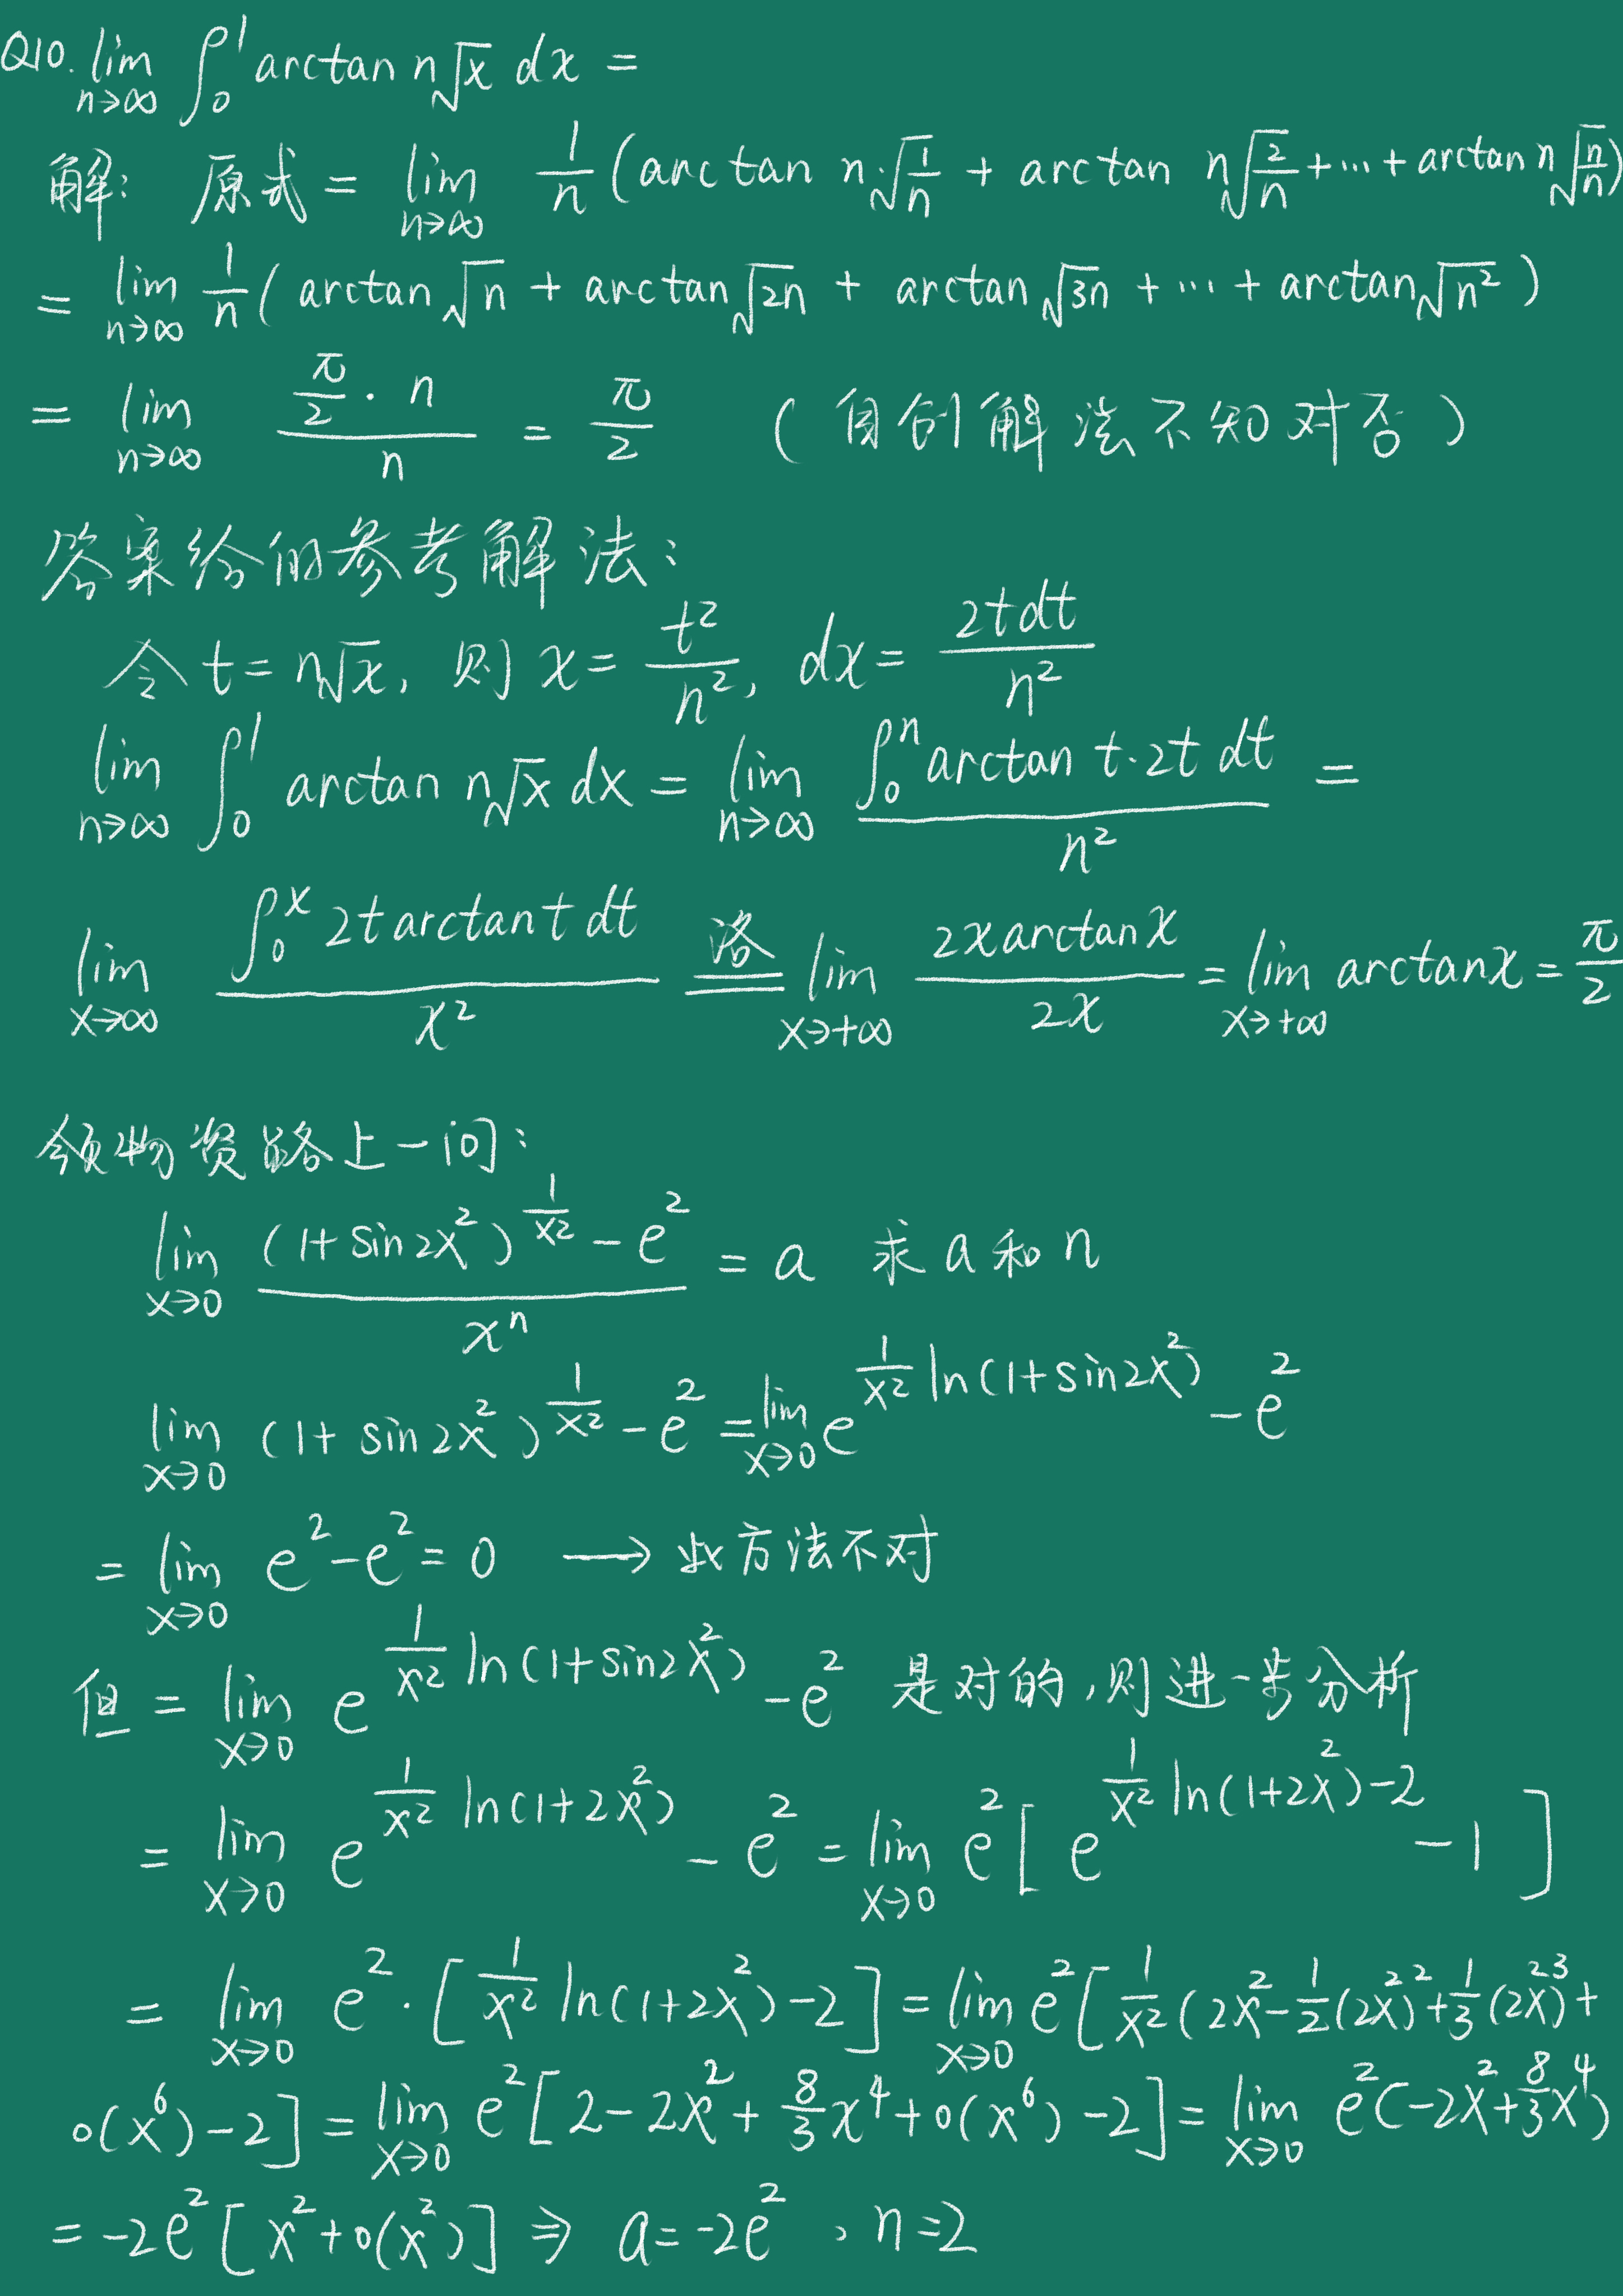 Q10. lim n→∞ ∫₀¹ arctan n√x dx =
解: 原式 = lim n→∞ 1/n (arctan n·√(1/n) + arctan n√(2/n) + … + arctan n√(n/n))
= lim n→∞ 1/n ( arctan √n + arctan √2n + arctan √3n + … + arctan √n² )
= lim n→∞ (π/2 · n)/n = π/2 ( 自创解法不知对否 )
答案给的参考解法:
令 t = n√x, 则 x = t²/n², dx = 2tdt/n²
lim n→∞ ∫₀¹ arctan n√x dx = lim n→∞ (∫₀ⁿ arctan t·2t dt)/n² =
lim x→∞ (∫₀ˣ 2t arctan t dt)/x² 洛= lim x→+∞ (2x arctan x)/2x = lim x→+∞ arctan x = π/2
领物资路上一问:
lim x→0 ((1+sin2x²)^(1/x²) - e²)/xⁿ = a 求 a 和 n
lim x→0 (1+sin2x²)^(1/x²) - e² = lim x→0 e^(1/x² ln(1+sin2x²)) - e²
= lim x→0 e² - e² = 0 → 此方法不对
但 = lim x→0 e^(1/x² ln(1+sin2x²)) - e² 是对的,则进一步分析
= lim x→0 e^(1/x² ln(1+2x²)) - e² = lim x→0 e² [ e^(1/x² ln(1+2x²)-2) - 1 ]
= lim x→0 e² · [ 1/x² ln(1+2x²) - 2 ] = lim x→0 e² [ 1/x² (2x² - 1/2 (2x²)² + 1/3 (2x²)³ +
o(x⁶) - 2 ] = lim x→0 e² [ 2 - 2x² + 8/3 x⁴ + o(x⁶) - 2 ] = lim x→0 e² (-2x² + 8/3 x⁴)
= -2e² [ x² + o(x²) ] ⇒ a = -2e², n = 2